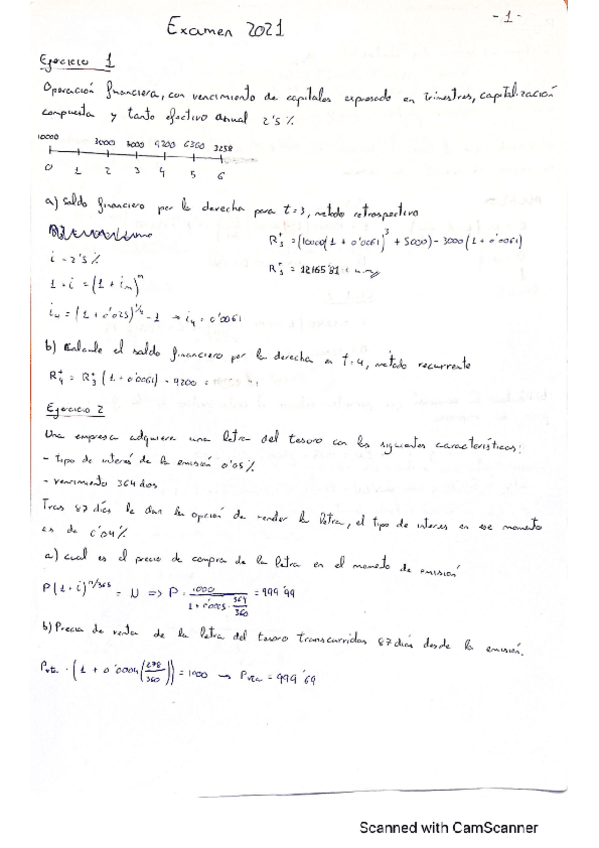 Examen 2021
- 1 -
Ejercicio 1
Operación financiera, con vencimiento de capitales expresado en trimestres, capitalización
compuesta y tanto efectivo anual 2'5 %
10000 3000 3000 9200 6300 3258
0 1 2 3 4 5 6
a) Saldo financiero por la derecha para t=3, método retrospectivo
i = 2'5 %
1+i = (1+in)^n
i4 = (1+0'025)^1/4 - 1 → i4 = 0'0061
R3+ = (10000(1+0'0061)^3 + 5000) - 3000(1+0'0061)
R3+ = 12165'81
b) Calcule el saldo financiero por la derecha en t=4, método recurrente
R4+ = R3+ (1+0'0061) - 9200 =
Ejercicio 2
Una empresa adquiere una letra del tesoro con las siguientes características:
- tipo de interés de la emisión 0'05 %
- vencimiento 364 días
Tras 87 días le dan la opción de vender la letra, el tipo de interes en ese momento
es de 0'04 %
a) cual es el precio de compra de la letra en el momento de emisión
P(1+i)^n/365 = N => P = 1000 / 1+0'0005·364/360 = 999'49
b) Precio de venta de la letra del tesoro transcurridos 87 días desde la emisión.
Pvta · (1+0'0004(278/360)) = 1000 → Pvta = 999'69
Scanned with CamScanner